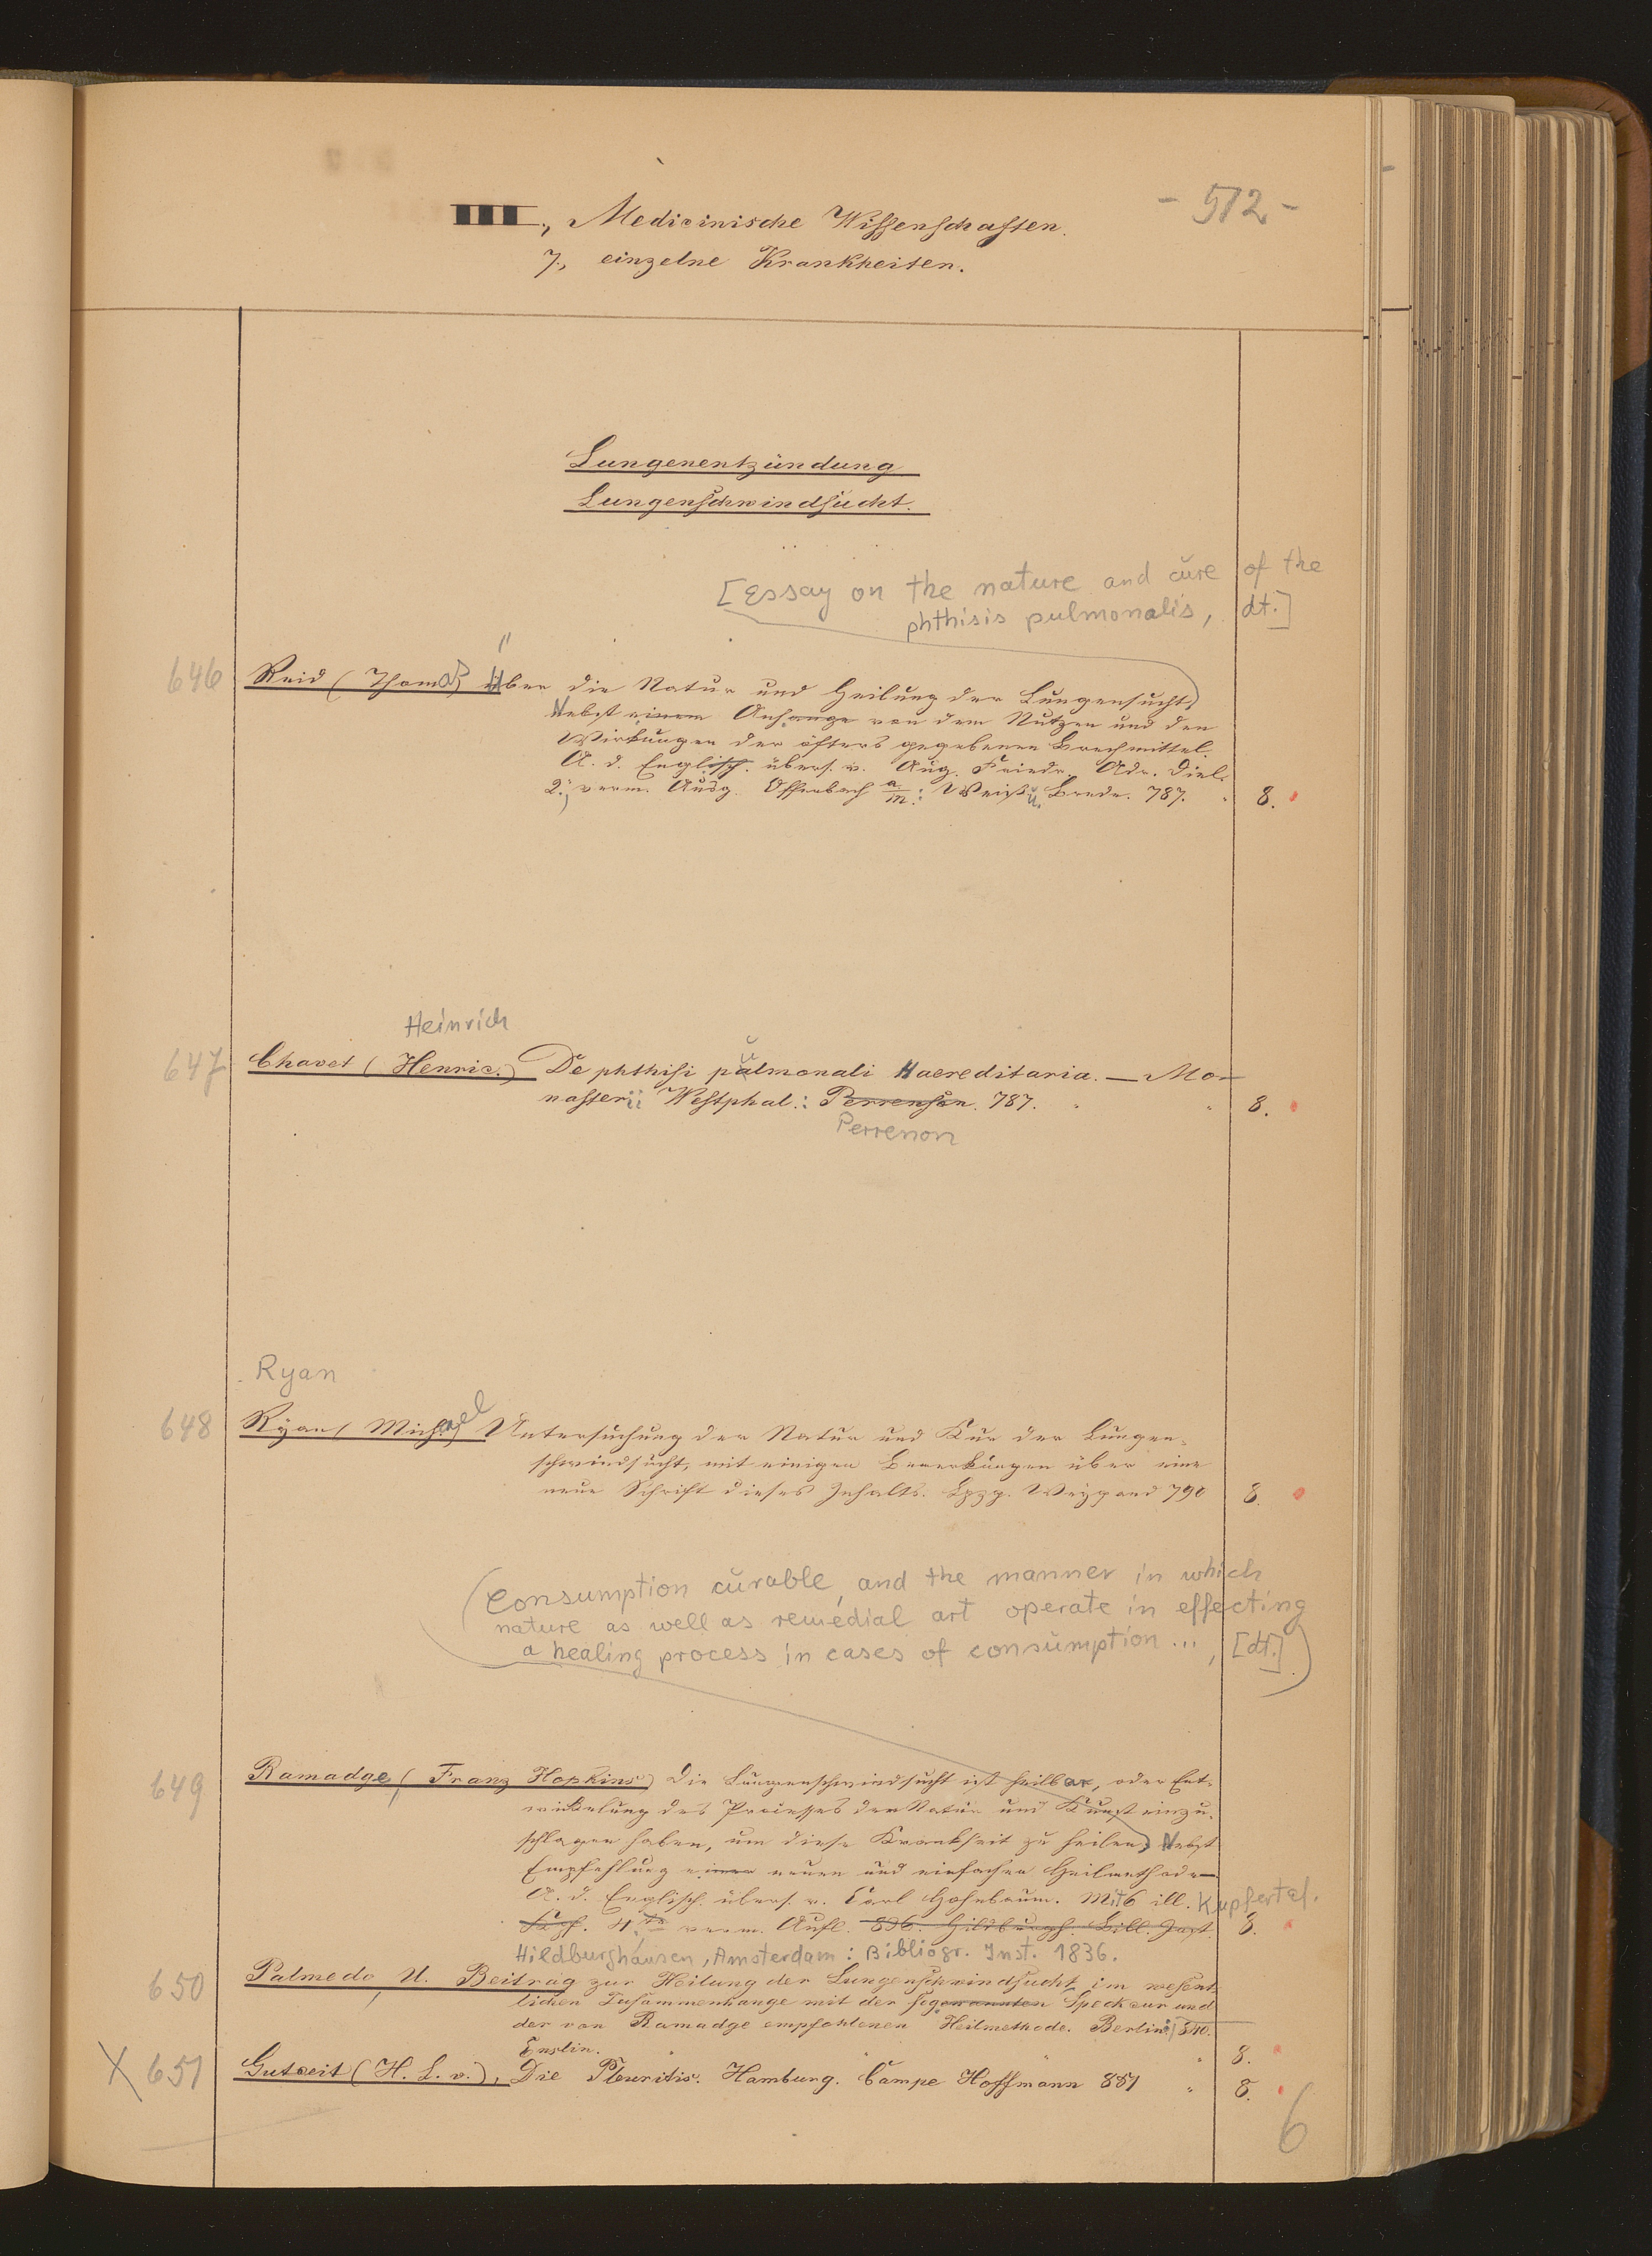 - 512 -
III., Medicinische Wissenschaften.
7., einzelne Krankheiten.
Lungenentzündung
Lungenschwindsucht.
[Essay on the nature and cure of the
phthisis pulmonalis, dt.]
646 Reid (Thomas) Über die Natur und Heilung der Lungensucht,
Nebst einem Anhange von dem Nutzen und den
Wirkungen der öfters gegebenen Brechmittel.
A. d. Englisch. übers. v. Aug. Friedr. Adr. Diel.
2., verm. Ausg. Offenbach a/M.: Weiß u. Brede. 787. 8.
Heinrich
647 Chavet (Henric.) De phthisi pulmonali Haereditaria. — Mo-
nasterii Westphal.: Perrenson. 787. 8.
Perrenon
Ryan
648 Ryan (Michael) Untersuchung der Natur und Kur der Lungen-
schwindsucht, mit einigen Bemerkungen über eine
neue Schrift dieses Inhalts. Lpzg. Weygand 790 8.
(Consumption curable, and the manner in which
nature as well as remedial art operate in effecting
a healing process in cases of consumption ..., [dt.])
649 Ramadge, (Franz Hopkins) Die Lungenschwindsucht ist heilbar, oder Ent-
wickelung des Processes den Natur und Kunst einzu-
schlagen haben, um diese Krankheit zu heilen, Nebst
Empfehlung einer neuen und einfachen Heilmethode—
A. d. Englisch. übers. v. Carl Hohnbaum. Mit 6 ill. Kupfertaf.
Kupf. 4.te verm. Aufl. 836. Hildburgh. Bibl. Inst. 8.
Hildburghausen, Amsterdam: Bibliogr. Inst. 1836.
650 Palmedo, U. Beitrag zur Heilung der Lungenschwindsucht, im wesent-
lichen Zusammenhange mit der sogenannten Speckcur und
der von Ramadge empfohlenen Heilmethode. Berlin: 840.
Enslin. 8.
X 651 Gutzeit (H. L. v.), Die Pleuritis. Hamburg. Campe Hoffmann 851 8.
6